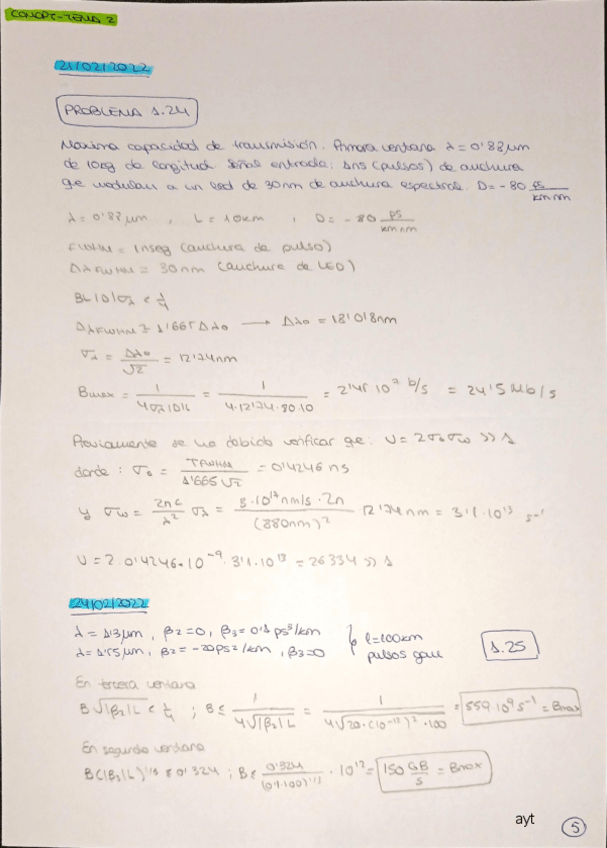 CONOPT-TEMA 2
21/02/2022
PROBLEMA 1.24
Máxima capacidad de transmisión. Primera ventana λ = 0'88 μm
de 10 Kg de longitud. Señal entrada: 1ns (pulsos) de anchura
que modulan a un led de 30 nm de anchura espectral. D = -80 ps/km nm
λ = 0'88 μm , L = 10 km , D = -80 ps/km nm
FWHM = 1 nseg (anchura de pulso)
ΔλFWHM = 30 nm (anchura de LED)
BL|D|σλ < 1/4
ΔλFWHM = 1'665 Δλ0 → Δλ0 = 18'018 nm
σλ = Δλ0/√2 = 12'74 nm
Bmax = 1/(4σλ|D|L) = 1/(4·12'74·80·10) = 2'45 10^7 b/s = 24'5 Mb/s
Previamente se ha debido verificar que: V = 2σ0σω >> 1
donde: σ0 = TFWHM/(1'665 √2) = 0'4246 ns
y σω = (2πc/λ²) σλ = (3·10^17 nm/s · 2π)/(880nm)² 12'74 nm = 3'1·10^13 s^-1
V = 2·0'4246·10^-9·3'1·10^13 = 26334 >> 1
24/02/2022
λ = 1'3 μm , β2 = 0 , β3 = 0'1 ps³/km
λ = 1'55 μm , β2 = -20 ps²/km , β3 = 0
L = 100 km
pulsos gauss
1.25
En tercera ventana
B√(|β2|L) < 1/4 ; B ≤ 1/(4√(|β2|L)) = 1/(4√(20·(10^-12)²·100)) = 559·10^9 s^-1 = Bmax
En segunda ventana
B(|β3|L)^1/3 ≤ 0'324 ; B ≤ 0'324/(0'1·100)^1/3 · 10^12 = 150 GB/s = Bmax
ayt
5